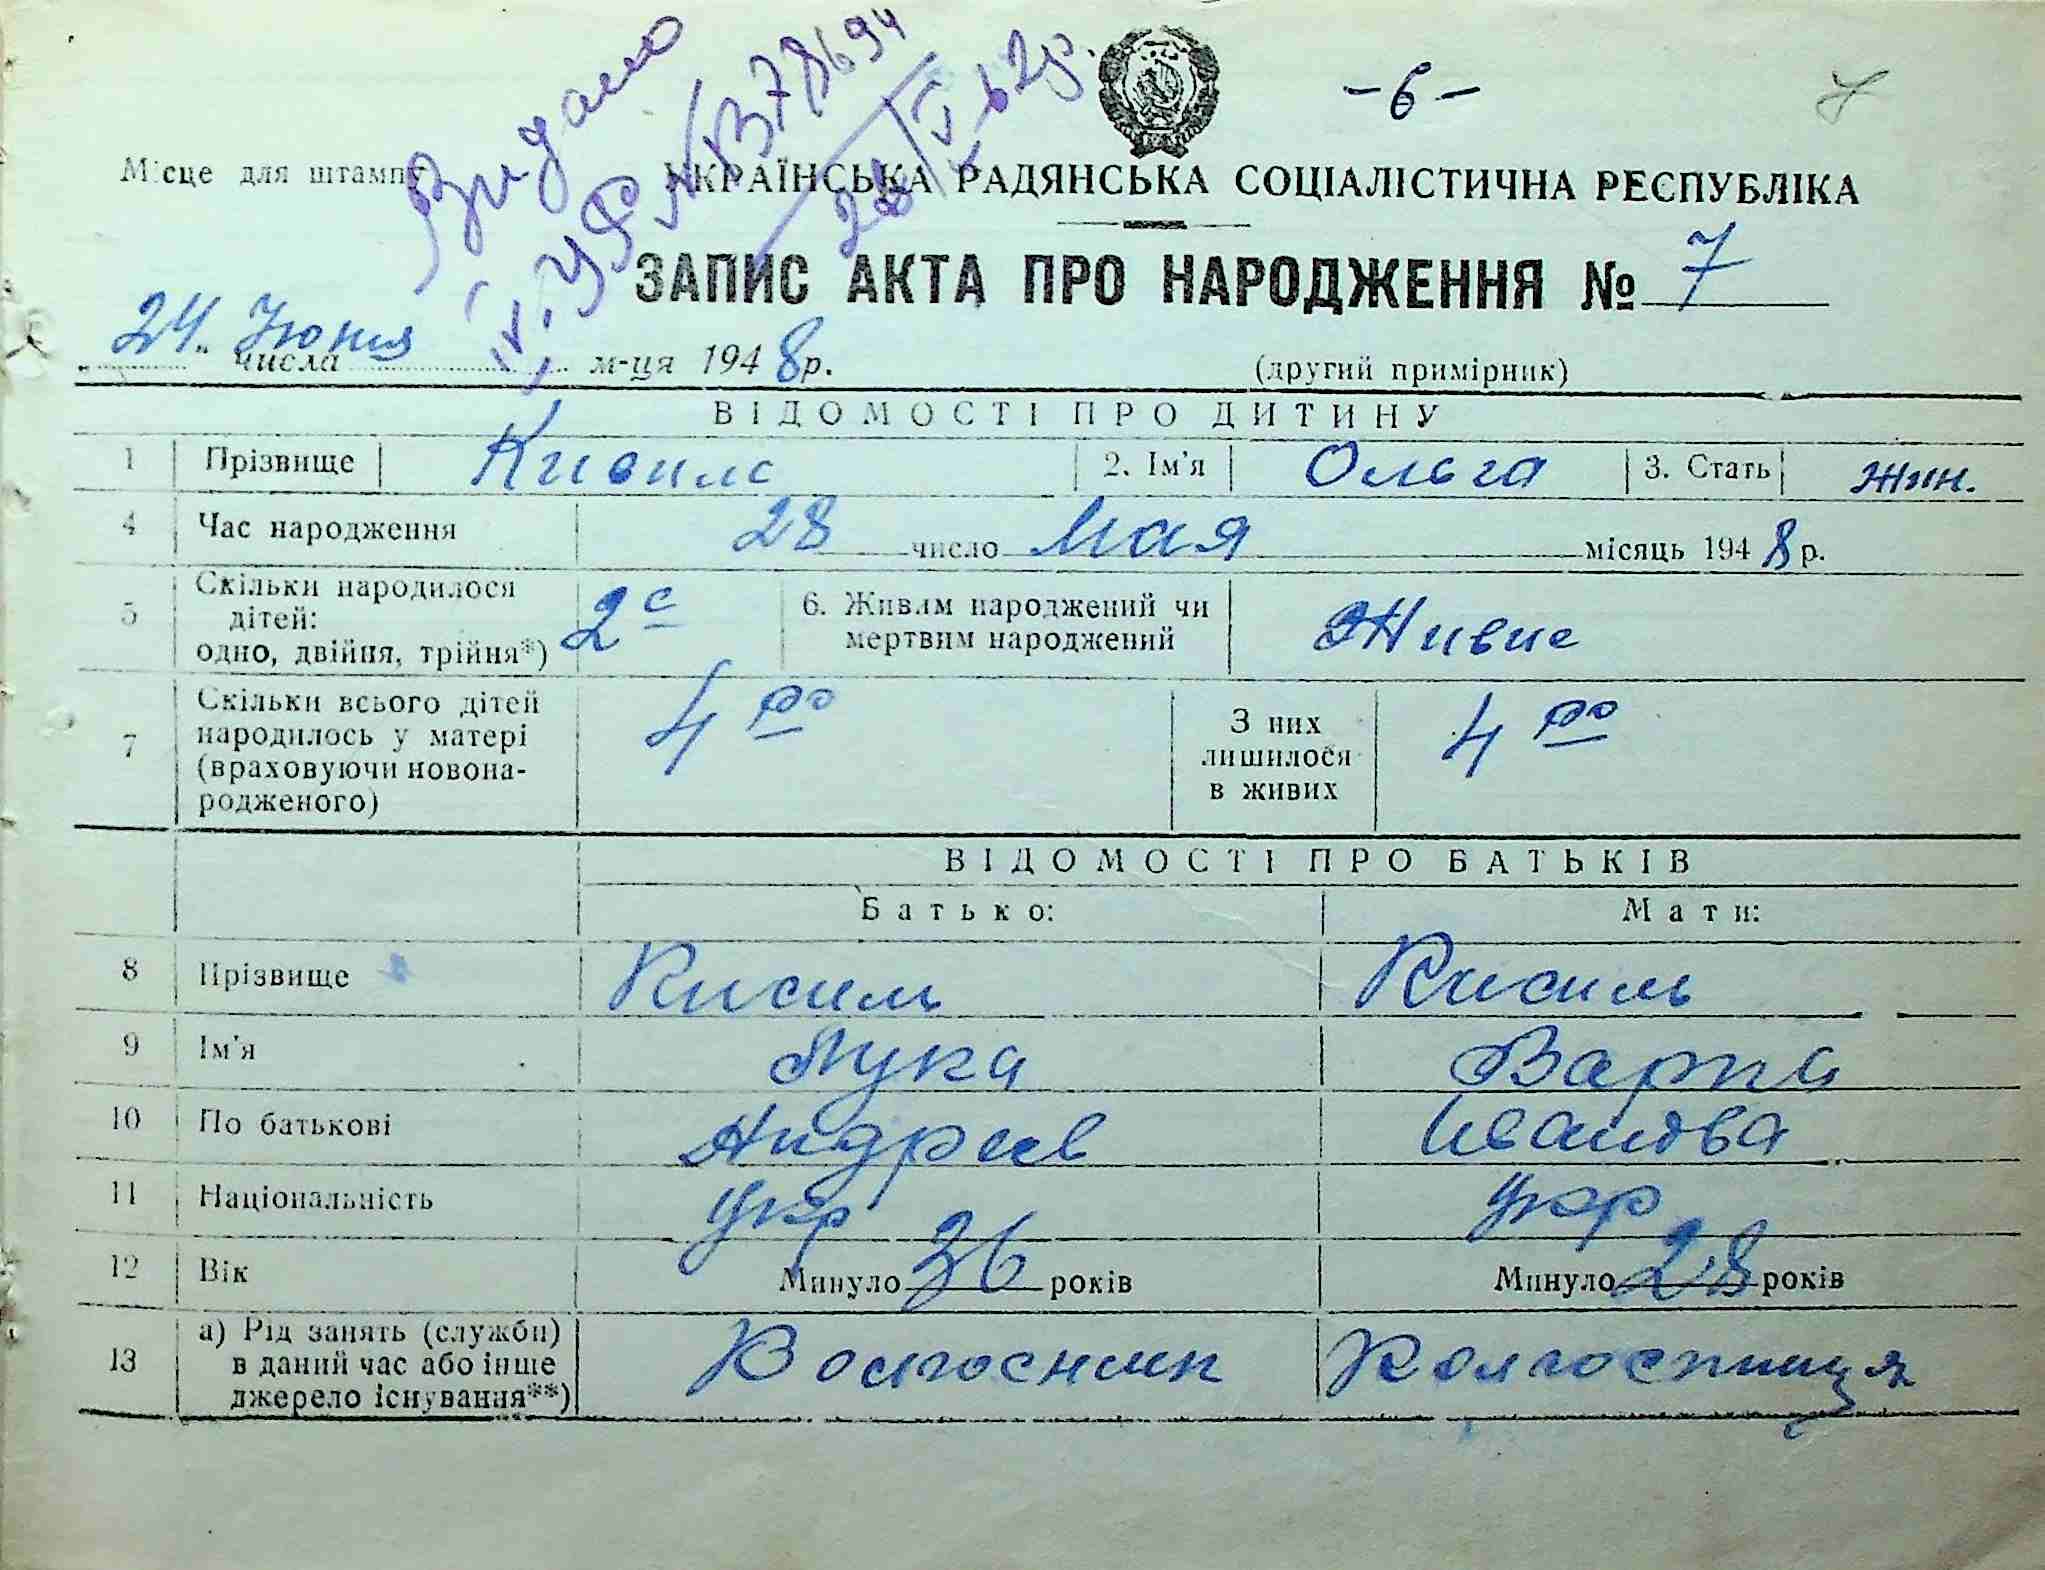 Видано
-6-
Місце для штампу
УКРАЇНСЬКА РАДЯНСЬКА СОЦІАЛІСТИЧНА РЕСПУБЛІКА
ЗАПИС АКТА ПРО НАРОДЖЕННЯ № 7
24 числа Июня м-ця 1948 р.
(другий примірник)
ВІДОМОСТІ ПРО ДИТИНУ
1 Прізвище 2. Ім'я Ольга 3. Стать жин.
4 Час народження 28 число Мая місяць 1948 р.
5 Скільки народилося дітей: одно, двійня, трійня*) 2 6. Живим народжений чи мертвим народжений Живие
7 Скільки всього дітей народилось у матері (враховуючи новонародженого) 4 ро З них лишилося в живих 4 ро
ВІДОМОСТІ ПРО БАТЬКІВ
Батько: Мати:
8 Прізвище Кисиль Кисиль
9 Ім'я Лука Варка
10 По батькові Андреев Иванова
11 Національність Укр Укр
12 Вік Минуло 36 років Минуло 28 років
13 а) Рід занять (служби) в даний час або інше джерело існування**) Колгосник Колгоспниця